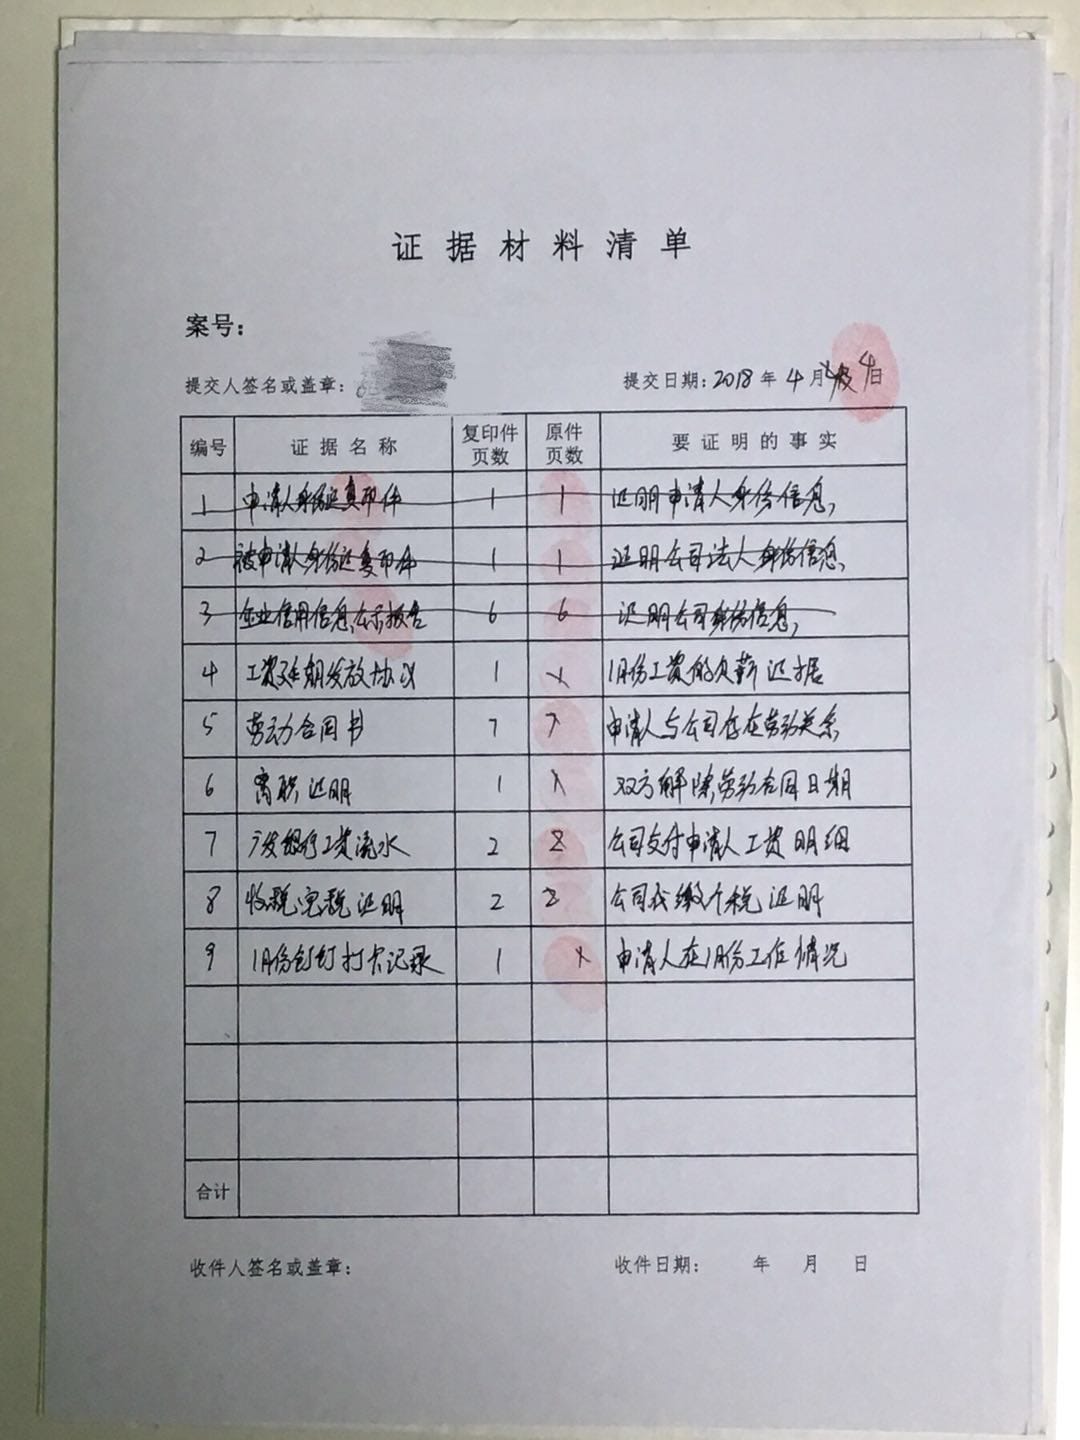 证据材料清单
案号：
提交人签名或盖章： 提交日期：2018年4月4日
编号 证据名称 复印件页数 原件页数 要证明的事实
1 申请人身份证复印件 1 1 证明申请人身份信息,
2 被申请人身份证复印件 1 1 证明公司法人身份信息,
3 企业信用信息公示报告 6 6 证明公司身份信息,
4 工资延期发放协议 1 1月份工资的欠薪证据
5 劳动合同书 7 7 申请人与公司存在劳动关系
6 离职证明 1 双方解除劳动合同日期
7 广发银行工资流水 2 2 公司交付申请人工资明细
8 收税完税证明 2 2 公司代缴个税证明
9 1月份钉钉打卡记录 1 申请人在1月份工作情况
合计
收件人签名或盖章： 收件日期： 年 月 日